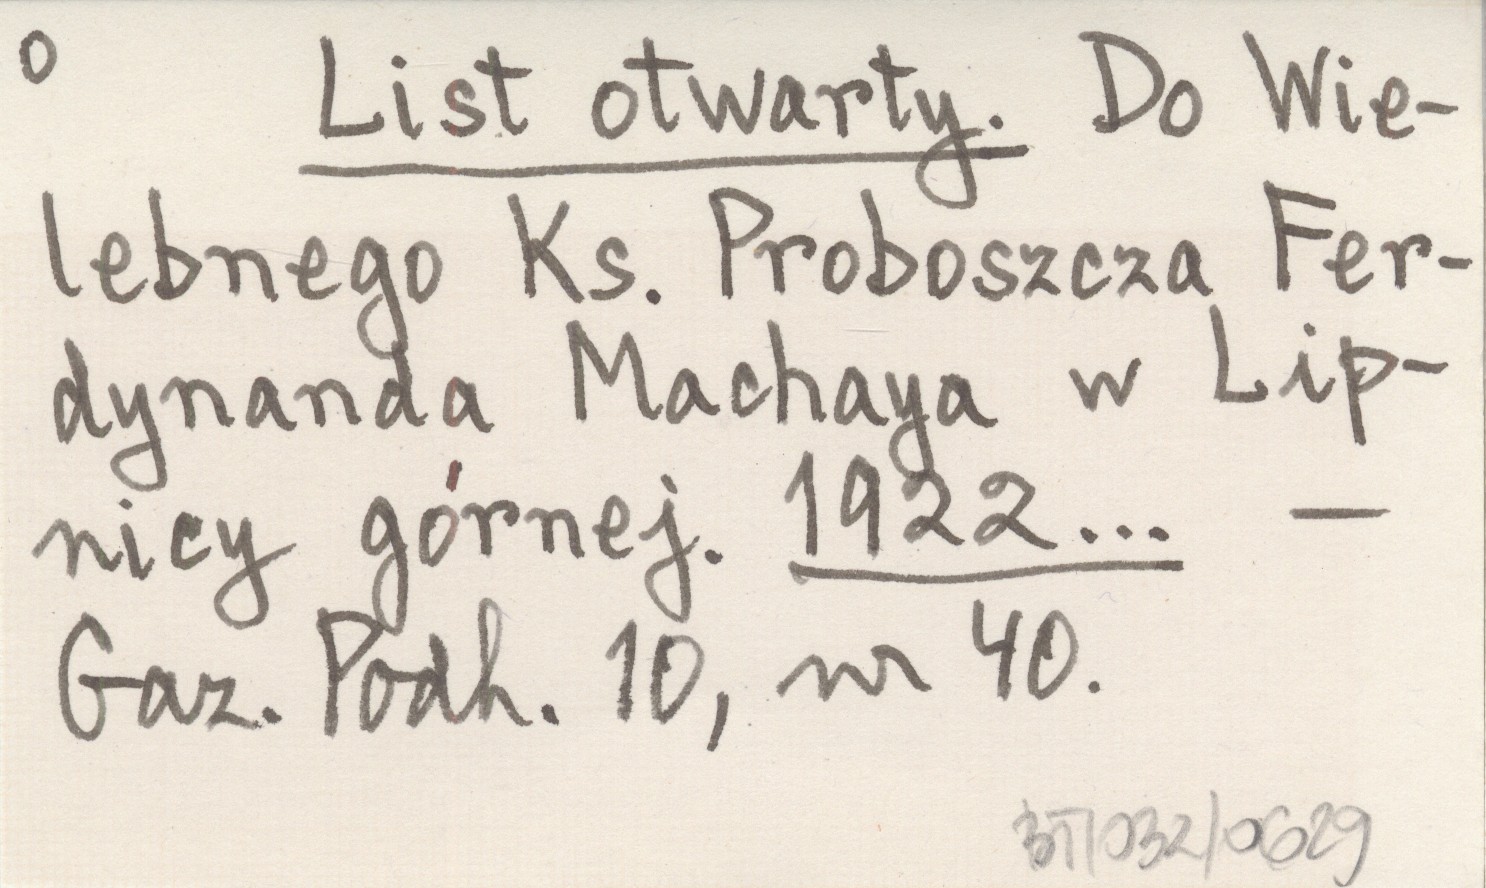 o List otwarty. Do Wie-
lebnego Ks. Proboszcza Fer-
dynanda Machaya w Lip-
nicy górnej. 1922... —
Gaz. Podh. 10, nr 40.
BT/032/0629